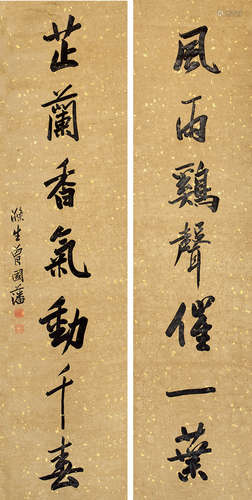 風雨鷄聲催一葉
芷蘭香氣動千春
滌生曾國藩